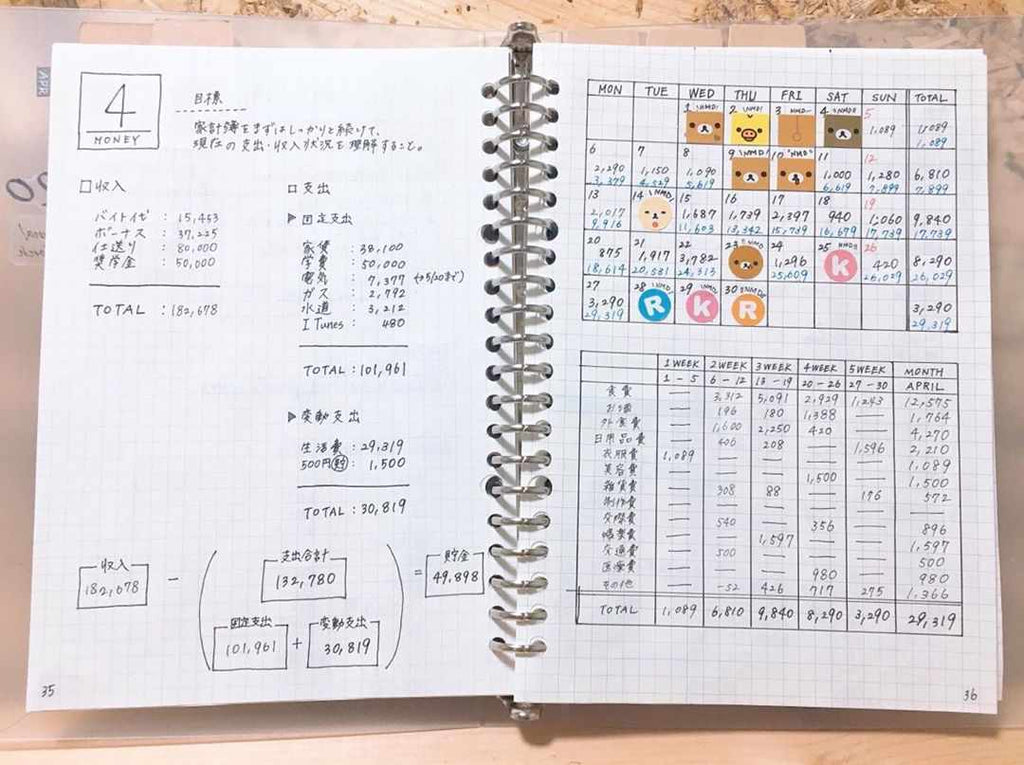 4
MONEY
目標
家計簿をまずはしっかりと続けて、
現在の支出・収入状況を理解すること。
□収入
バイトイゼ : 15,453
ボーナス : 37,225
仕送り : 80,000
奨学金 : 50,000
TOTAL : 182,678
□支出
▶固定支出
家賃 : 38,100
学費 : 50,000
電気 : 7,377
ガス : 2,792
水道 : 3,212
ITunes : 480
TOTAL : 101,961
▶変動支出
生活費 : 29,319
500円貯 : 1,500
TOTAL : 30,819
収入
182,678
−
支出合計
132,780
固定支出
101,961
+
変動支出
30,819
=
貯金
49,898
35
MON TUE WED THU FRI SAT SUN TOTAL
1 NMD! 2 NMD! 3 NMD 4 NMD! 5
1,089 1,089
1,089
6 7 8 9 NMD! 10 NMD! 11 12
2,290 1,150 1,090 1,000 1,280 6,810
3,379 4,529 5,619 6,619 7,899 7,899
13 14 NMD 15 16 17 18 19
2,017 1,687 1,739 2,397 940 1,060 9,840
9,916 11,603 13,342 15,739 16,679 17,739 17,739
20 21 22 23 NMD 24 25 NMD 26
875 1,917 3,782 1,296 K 420 8,290
18,614 20,531 24,313 25,609 26,029 26,029
27 28 NMD 29 NMD 30 NMD
3,290 R K R 3,290
29,319 29,319
1WEEK 2WEEK 3WEEK 4WEEK 5WEEK MONTH
1 - 5 6 - 12 13 - 19 20 - 26 27 - 30 APRIL
食費 — 3,312 5,091 2,929 1,243 12,575
— 196 180 1,388 — 1,764
外食費 — 1,600 2,250 420 — 4,270
日用品費 — 406 208 — 1,596 2,210
衣服費 1,089 — — — — 1,089
美容費 — — — 1,500 — 1,500
雑貨費 — 308 88 — 176 572
制作費 — — — — — —
交際費 — 540 — 356 — 896
娯楽費 — — 1,597 — — 1,597
交通費 — 500 — — — 500
医療費 — — — 980 — 980
その他 — -52 426 717 275 1,366
TOTAL 1,089 6,810 9,840 8,290 3,290 29,319
36
APR